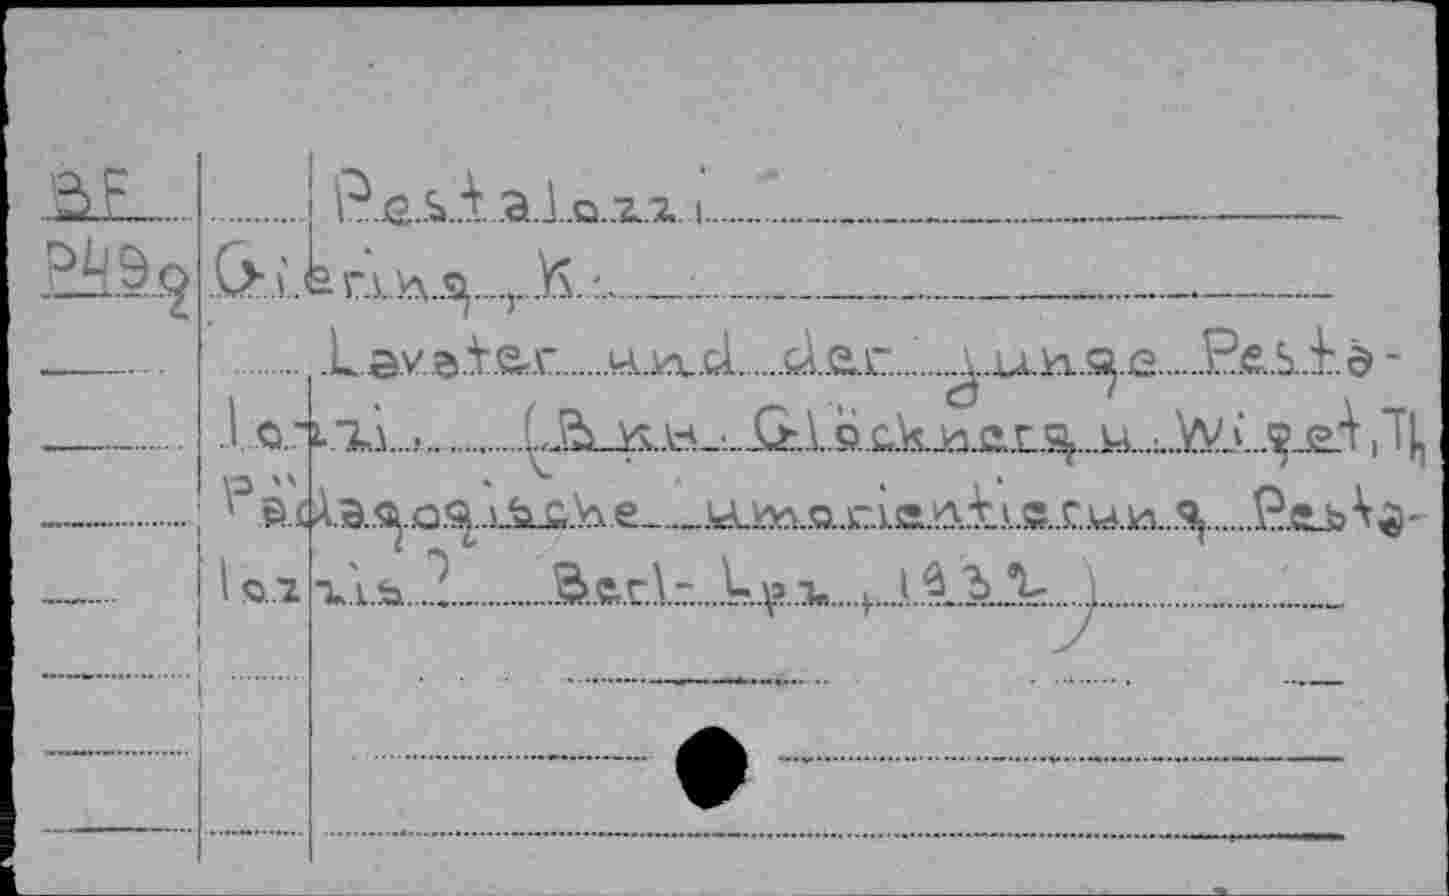 BF Pestalozzi
P49g Giering, K.
Lavater und der junge Pesta-
lozzi, (B Glöcknerg u. Wiget, Th
Pädagogische umorientierung Pesta-
lozzis? Berl-Lpz, 1932)